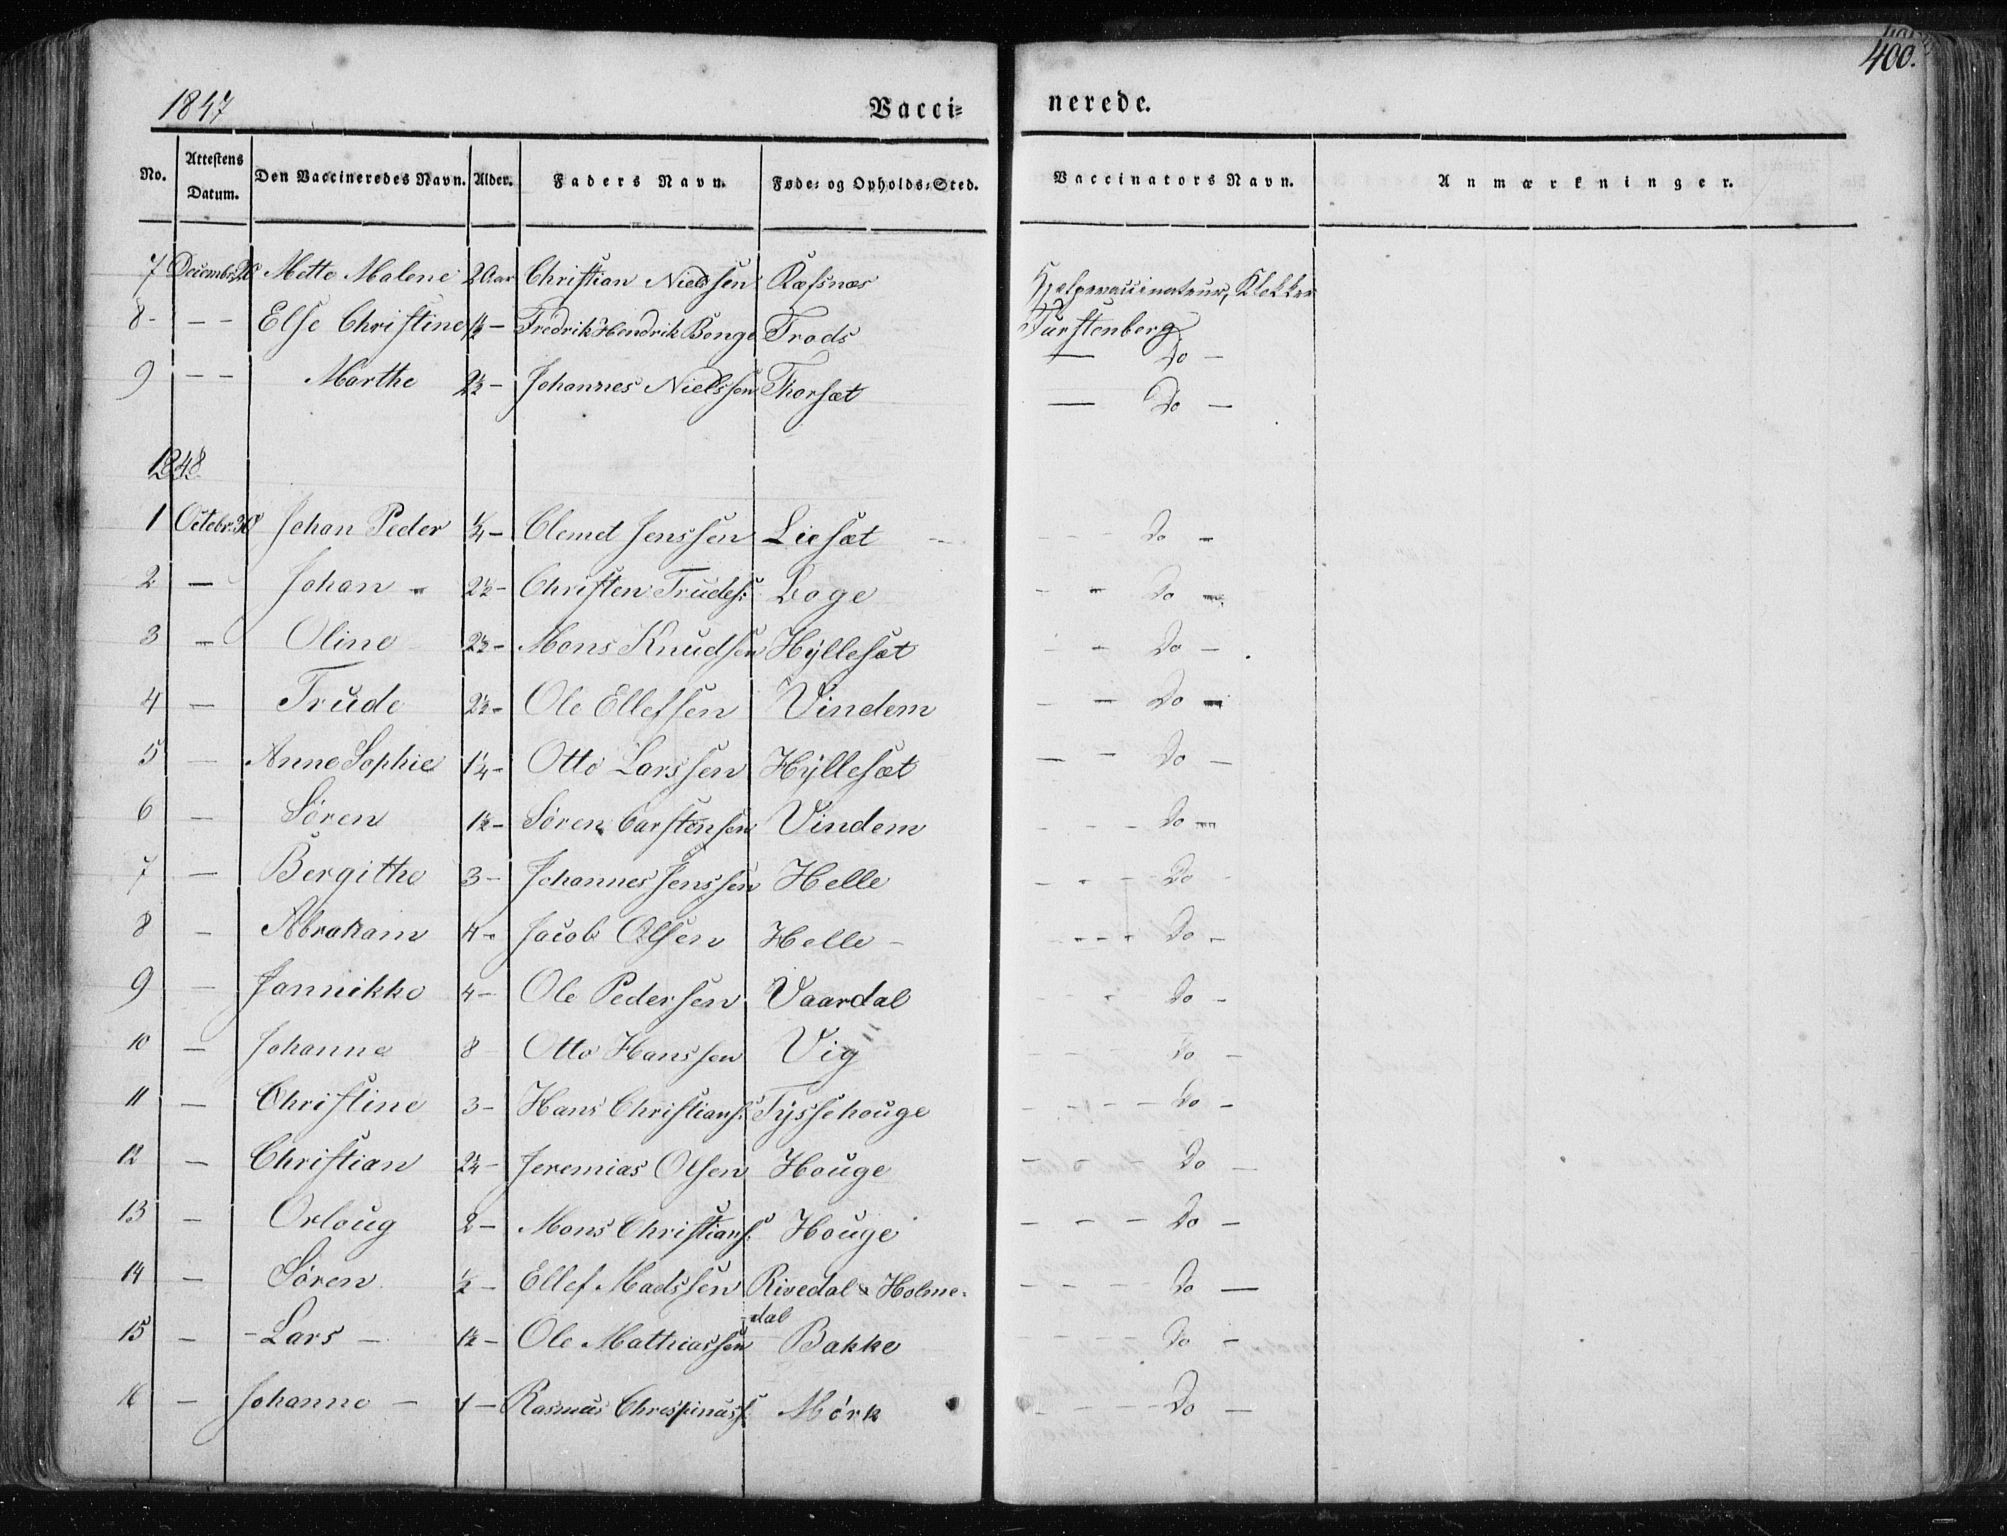 400.
1847 Vacci= nerede.
No. Attestens Datum. Den Vaccineredes Navn. Alder. Faders Navn. Føde= og Opholds=Sted. Vaccinators Navn. Anmærkninger.
7 Decembr. Mette Malene 2 Aar Christian Nielssen Ræsnæs Hjelpevaccinateur, Klokker
8 - — — Else Christine 1½ — Fredrik Hendrik Bonge Trods Fürstenberg
— Do —
9 — — Marthe 2½ — Johannes Nielssen Thorsæt — Do —
1848
1 Octobr. 30 Johan Peder ¼ — Clemet Jenssen Liesæt — - - - Do —
2 — Johan — 2½ — Christen Trudes: Loge - - Do —
3 — Oline 2½ — Mons Knudsen Hÿllesæt - - Do —
4 — Trude 2½ — Ole Ellefsen Vindem - - Do —
5 — Anne Sophie 1¼ — Otto Larssen Hÿllesæt — - Do —
6 — Sören 1½ — Sören Carstensen Vindem - - - Do —
7 — Bergithe 3 — Johannes Jenssen Helle - - - Do -
8 — Abraham 4 — Jacob Olsen Helle — - - - - Do -
9 — Jannikke 4 — Ole Pedersen Vaardal - - - Do —
10 — Johanne 8 — Otto Hanssen Vig - - - Do —
11 — Christine 3 — Hans Christians: Tÿssehouge - - - - Do —
12 — Christian 2¼ — Jeremias Olsen Houge - - - Do —
13 — Orloug 2 — Mons Christians: Houge - - - Do —
14 — Sören ½ — Ellef Madssen Rivedal & Holme-
dal - - - Do —
15 — - Lars — 1½ — Ole Mathiassen Bakke - - - - Do -
16 — Johanne — 1 — Rasmus Chrispinuss: Mörk - - - - Do —